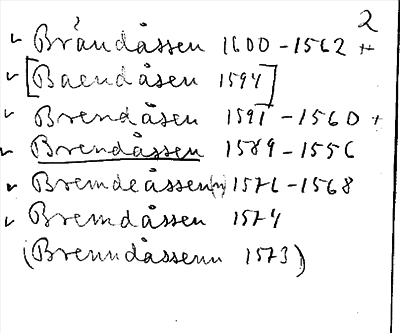 2
✓ Brändåssen 1600-1562 +
✓ [Baendåsen 1594]
✓ Brendåsen 1591-1560 +
✓ Brendåssen 1589-1556
✓ Bremdeåssen(n) 1576-1568
✓ Bremdåssen 1574
(Brenndåssenn 1573)